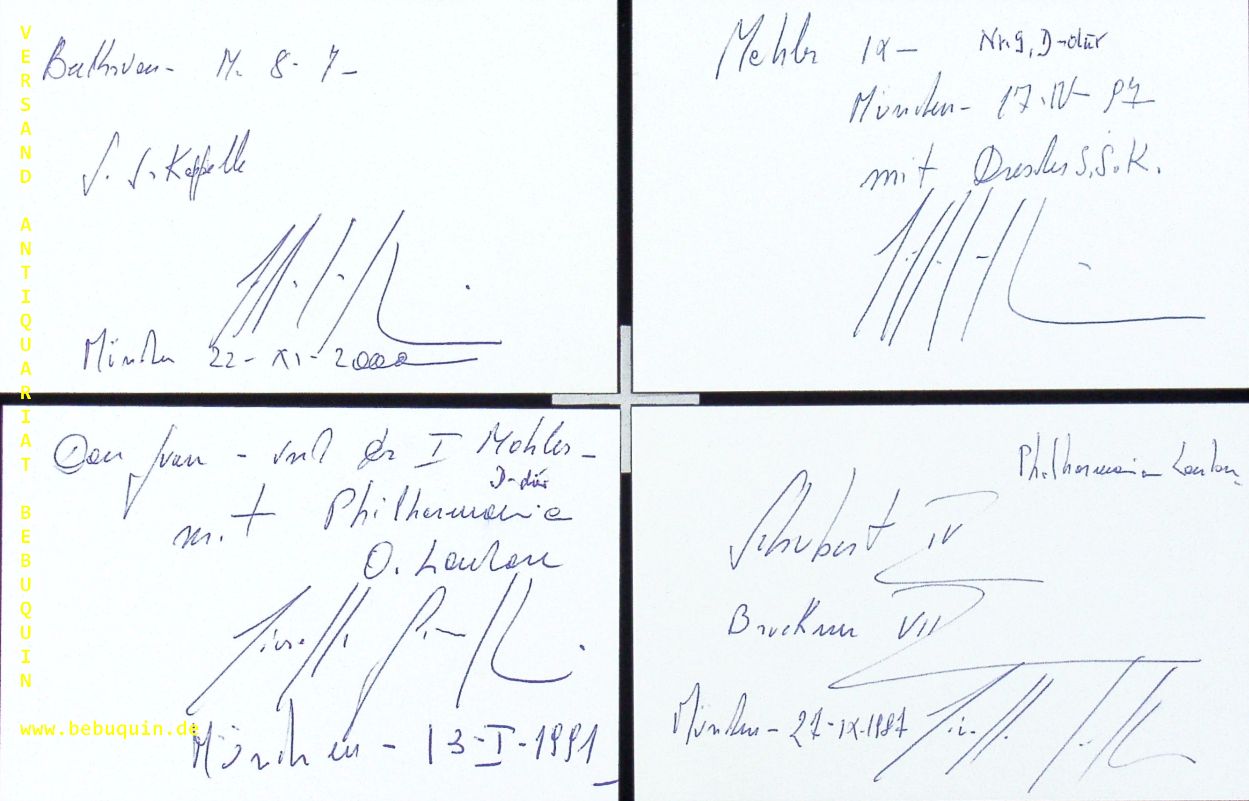 VERSAND ANTIQUARIAT BEBUQUIN
www.bebuquin.de
Beethoven - N. 8 - 7 -
S. S. Kappelle
München 22 - XI - 2000
Mahler IX - Nr. 9, D-dur
München - 17 - IV - 97
mit Dresden S. S. K.
Don Juan - und der I Mahler -
D-dur
mit Philharmonia
O. London
München - 13 - I - 1991
Philharmonia London
Schubert IV
Bruckner VII
München - 27 - IX - 1987